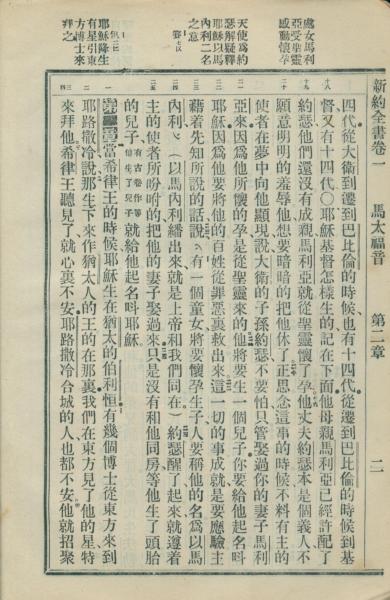 新約全書卷一　馬太福音　第二章　二
處女馬利
亞受聖靈
感動懷孕
天使為約
瑟解疑釋
耶穌以馬
內利二名
之意
賽七
耶穌降生
有星引東
方博士來
拜之
十八
十九
二十
二一
二二
二三
二四
二五
一
二
三
四
四代、從大衛到遷到巴比倫的時候、也有十四代、從遷到巴比倫的時候到基
督又有十四代〇耶穌基督怎樣生的記在下面他母親馬利亞已經許配了
約瑟他們還沒有成親馬利亞就從聖靈懷了孕他丈夫約瑟本是個義人不
願意明明的羞辱他想要暗暗的把他休了正思念這事的時候不料有主的
使者在夢中向他顯現說大衛的子孫約瑟不要怕只管娶過你的妻子馬利
亞來因為他所懷的孕是從聖靈來的他將要生一個兒子你要給他起名呌
耶穌因為他要將他的百姓從罪惡裏救出來這一切的事成就是要應驗主
藉着先知所說的話說、有一個童女將要懷孕生子人要稱他的名為以馬
內利、（以馬內利繙出來就是上帝和我們同在）約瑟醒了起來就遵着
主的使者所吩咐的把他的妻子娶過來只是沒有和他同房等他生了頭胎
的兒子有古卷作等他生了兒子就給他起名呌耶穌
第二章當希律王的時候耶穌生在猶太的伯利恒有幾個博士從東方來到
耶路撒冷說那生下來作猶太人的王的在那裏我們在東方見了他的星特
來拜他希律王聽見了就心裏不安耶路撒冷合城的人也都不安他就招聚